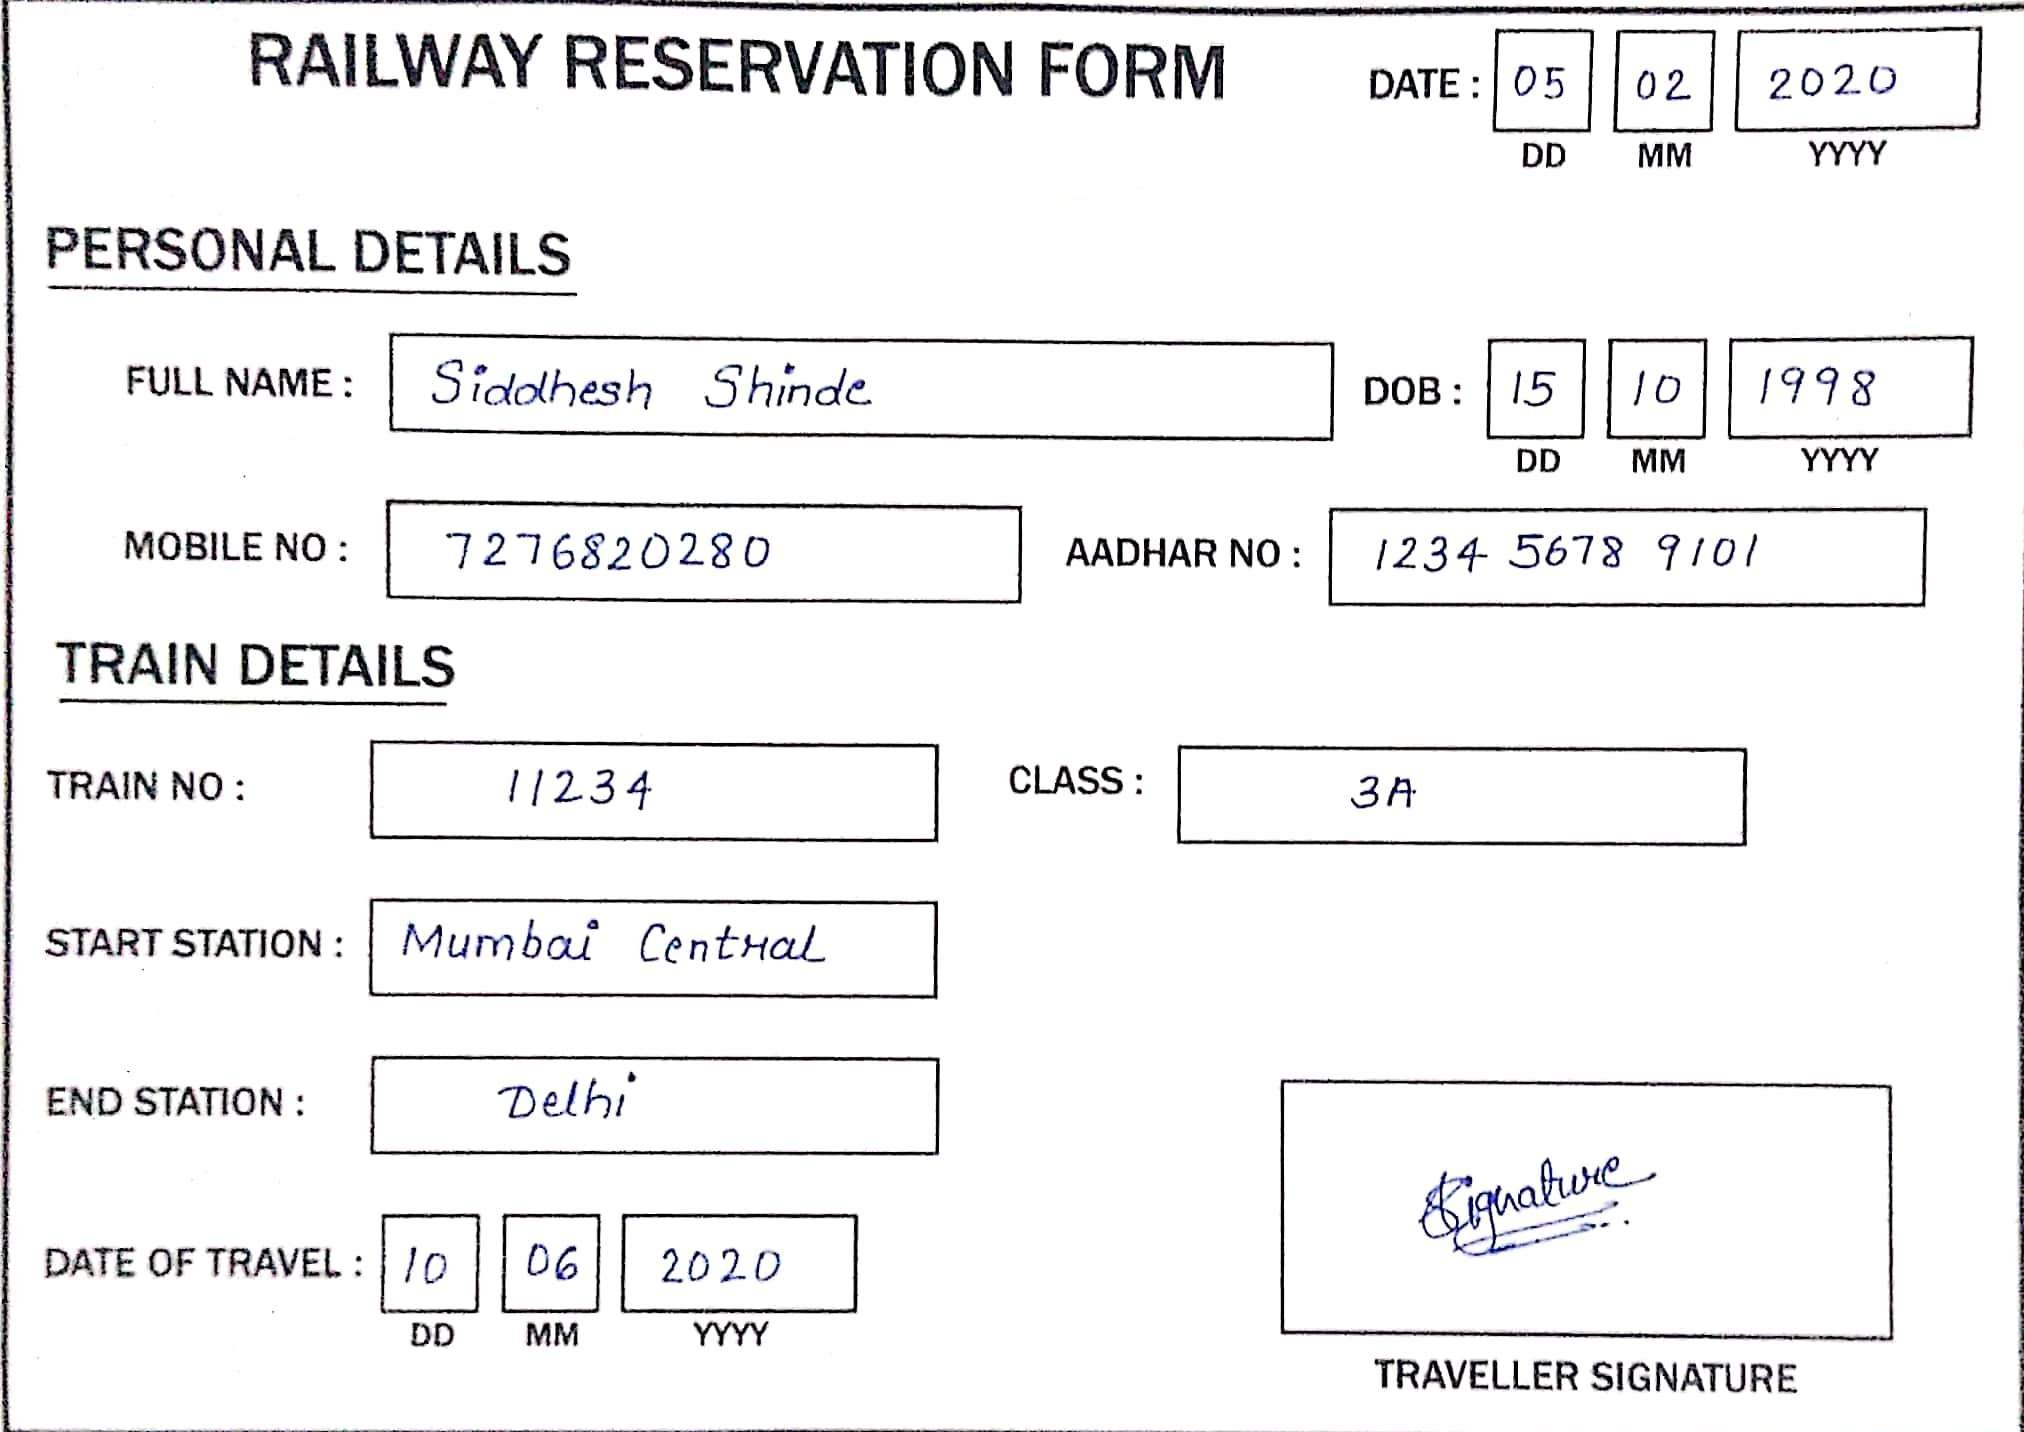 RAILWAY RESERVATION FORM DATE : 05 02 2020
DD MM YYYY
PERSONAL DETAILS
FULL NAME : Siddhesh Shinde DOB : 15 10 1998
DD MM YYYY
MOBILE NO : 7276820280 AADHAR NO : 1234 5678 9101
TRAIN DETAILS
TRAIN NO : 11234 CLASS : 3A
START STATION : Mumbai Central
END STATION : Delhi
Signature
DATE OF TRAVEL : 10 06 2020
DD MM YYYY
TRAVELLER SIGNATURE